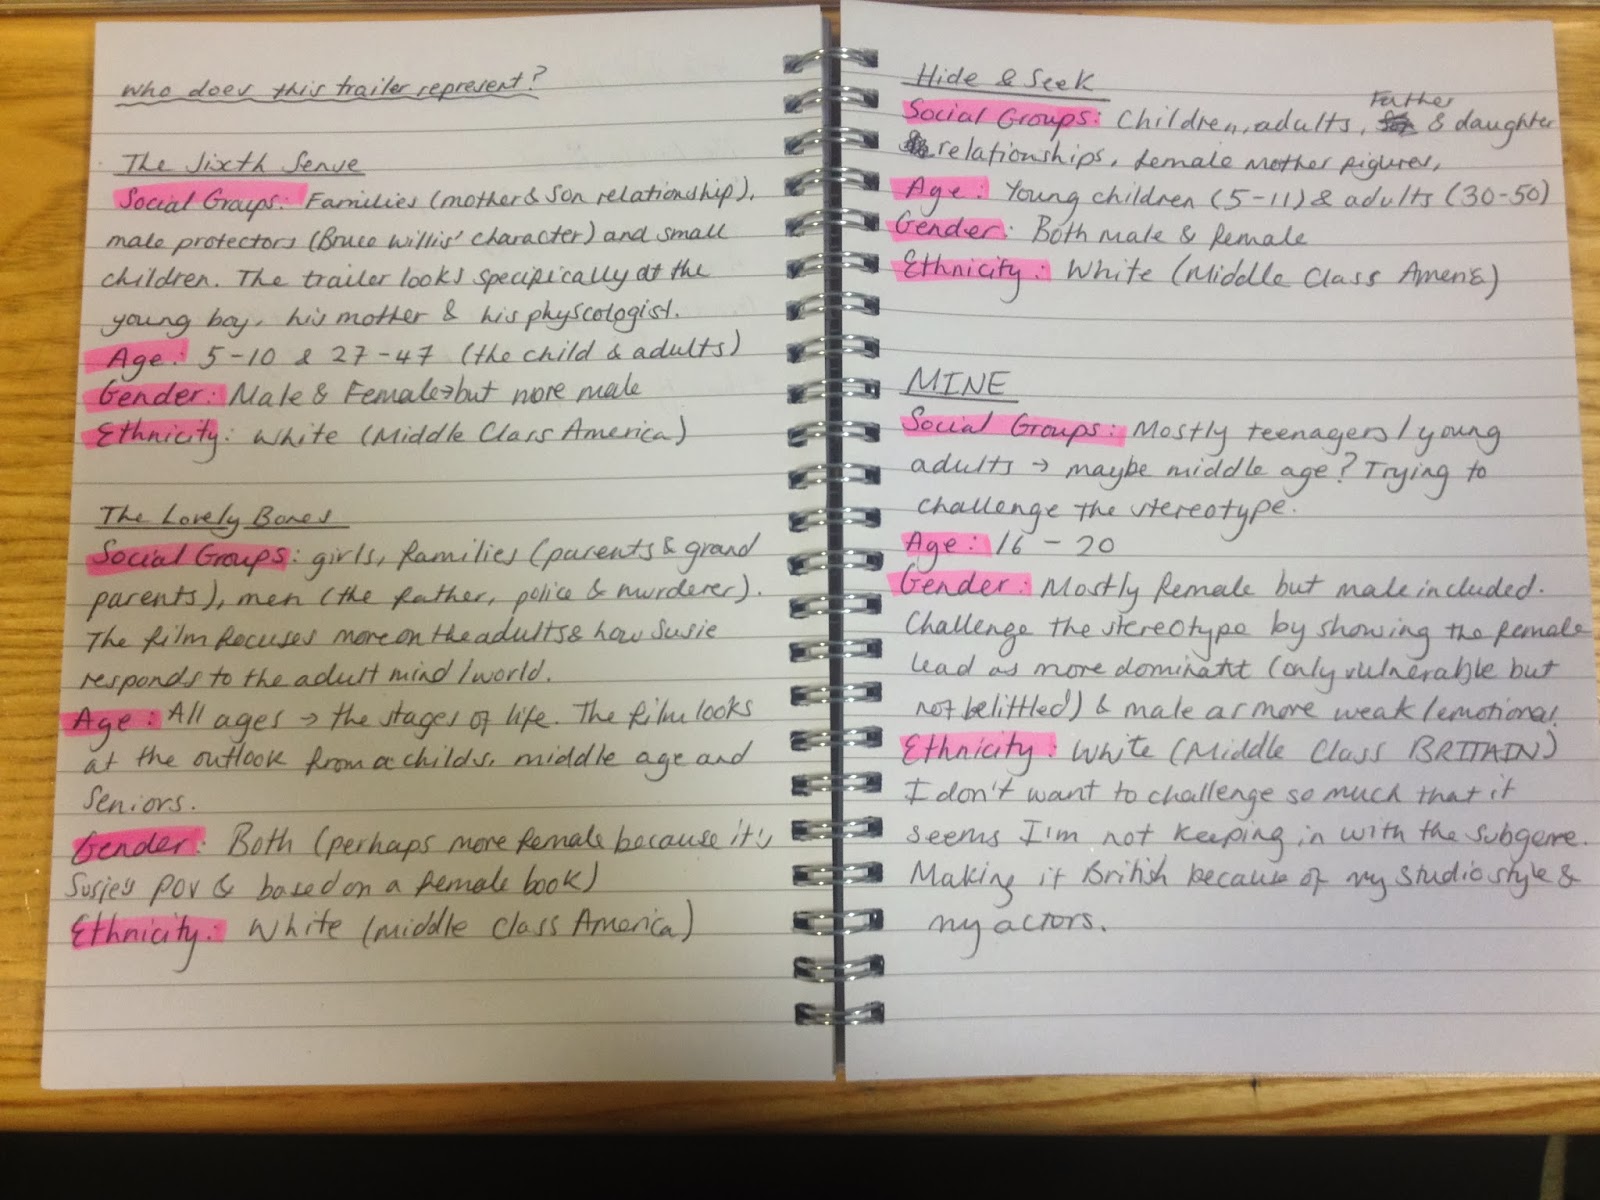 who does this trailer represent?
The Sixth Sense
Social Groups: Families (mother & son relationship),
male protectors (Bruce Willis' character) and small
children. The trailer looks specifically at the
young boy, his mother & his physcologist.
Age: 5-10 & 27-47 (the child & adults)
Gender: Male & Female → but more male
Ethnicity: White (Middle Class America)
The Lovely Bones
Social Groups: girls, families (parents & grand
parents), men (the father, police & murderer).
The film focuses more on the adults & how Susie
responds to the adult mind/world.
Age: All ages → the stages of life. The film looks
at the outlook from a childs, middle age and
seniors.
Gender: Both (perhaps more female because it's
Susie's POV & based on a female book)
Ethnicity: White (Middle Class America)
Hide & Seek
Social Groups: Children, adults, Father & daughter
relationships, female mother figures,
Age: Young children (5-11) & adults (30-50)
Gender: Both male & female
Ethnicity: White (Middle Class
MINE
Social Groups: Mostly teenagers/young
adults → maybe middle age? Trying to
challenge the stereotype.
Age: 16 - 20
Gender: Mostly female but male included.
Challenge the stereotype by showing the female
lead as more dominant (only vulnerable but
not belittled) & male as more weak/emotional.
Ethnicity: White (Middle Class BRITAIN)
I don't want to challenge so much that it
seems I'm not keeping in with the subgenre.
Making it British because of my studio style &
my actors.